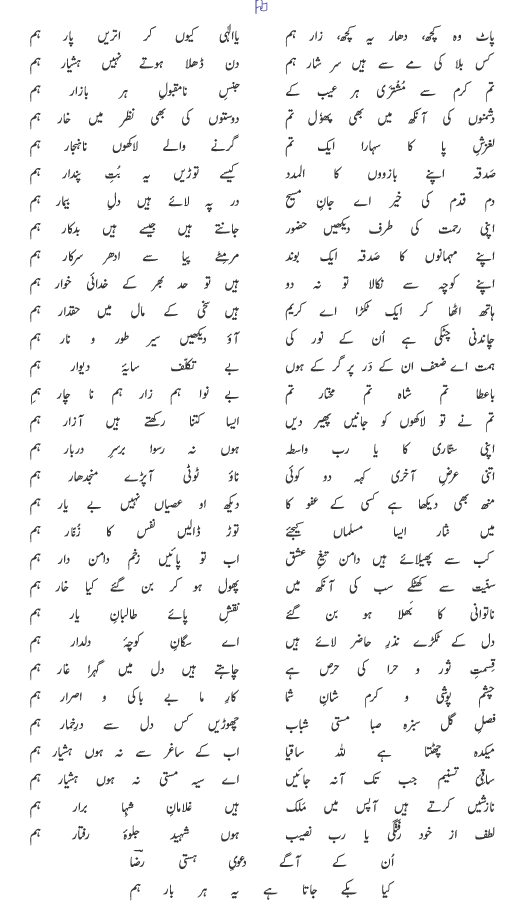 پاٹ وہ کچھ، دھار یہ کچھ، زار ہم یاالٰہی کیوں کر اتریں پار ہم
کس بلا کی مے سے ہیں سر شار ہم دن ڈھلا ہوتے نہیں ہشیار ہم
تم کرم سے مُشتَرِی ہر عیب کے جنسِ نامقبولِ ہر بازار ہم
دشمنوں کی آنکھ میں بھی پھول تم دوستوں کی بھی نظر میں خار ہم
لغزشِ پا کا سہارا ایک تم گرنے والے لاکھوں ناہنجار ہم
صَدقہ اپنے بازووں کا المدد کیسے توڑیں یہ بُتِ پندار ہم
دم قدم کی خیر اے جانِ مسیح در پہ لائے ہیں دلِ بیمار ہم
اپنی رحمت کی طرف دیکھیں حضور جانتے ہیں جیسے ہیں بدکار ہم
اپنے مہمانوں کا صَدقہ ایک بوند مرمٹے پیاسے ادھر سرکار ہم
اپنے کوچہ سے نکالا تو نہ دو ہیں تو حد بھر کے خدائی خوار ہم
ہاتھ اٹھا کر ایک ٹکڑا اے کریم ہیں سخی کے مال میں حقدار ہم
چاندنی چھٹکی ہے اُن کے نور کی آؤ دیکھیں سیرِ طور و نار ہم
ہمت اے ضعف ان کے دَر پر گر کے ہوں بے تکلّف سایۂ دیوار ہم
باعطا تم شاہ تم مختار تم بے نوا ہم زار ہم نا چار ہم
تم نے تو لاکھوں کو جانیں پھیر دیں ایسا کتنا رکھتے ہیں آزار ہم
اپنی ستّاری کا یا رب واسطہ ہوں نہ رسوا برسرِ دربار ہم
اتنی عرضِ آخری کہہ دو کوئی ناؤ ٹوٹی آپڑے منجدھار ہم
منھ بھی دیکھا ہے کسی کے عفو کا دیکھ او عصیاں نہیں بے یار ہم
میں نثار ایسا مسلماں کیجئے توڑ ڈالیں نفس کا زُنّار ہم
کب سے پھیلائے ہیں دامن تیغِ عشق اب تو پائیں زخم دامن دار ہم
سنّیت سے کھٹکے سب کی آنکھ میں پھول ہو کر بن گئے کیا خار ہم
ناتوانی کا بھلا ہو بن گئے نقشِ پائے طالبانِ یار ہم
دل کے ٹکڑے نذرِ حاضر لائے ہیں اے سگانِ کوچۂ دلدار ہم
قِسمتِ ثور و حرا کی حرص ہے چاہتے ہیں دل میں گہرا غار ہم
چشم پوشی و کرم شانِ شما کارِ ما بے باکی و اصرار ہم
فصلِ گل سبزہ صبا مستی شباب چھوڑیں کس دل سے درِخمار ہم
میکدہ چھٹتا ہے للہ ساقیا اب کے ساغر سے نہ ہوں ہشیار ہم
ساقیٔ تسنیم جب تک آنہ جائیں اے سیہ مستی نہ ہوں ہشیار ہم
نازشیں کرتے ہیں آپس میں مَلک ہیں غلامانِ شہِا برار ہم
لطف از خود رَفتگی یا رب نصیب ہوں شہیدِ جلوۂ رفتار ہم
اُن کے آگے دعویِ ہستی رضؔا
کیا بکے جاتا ہے یہ ہر بار ہم